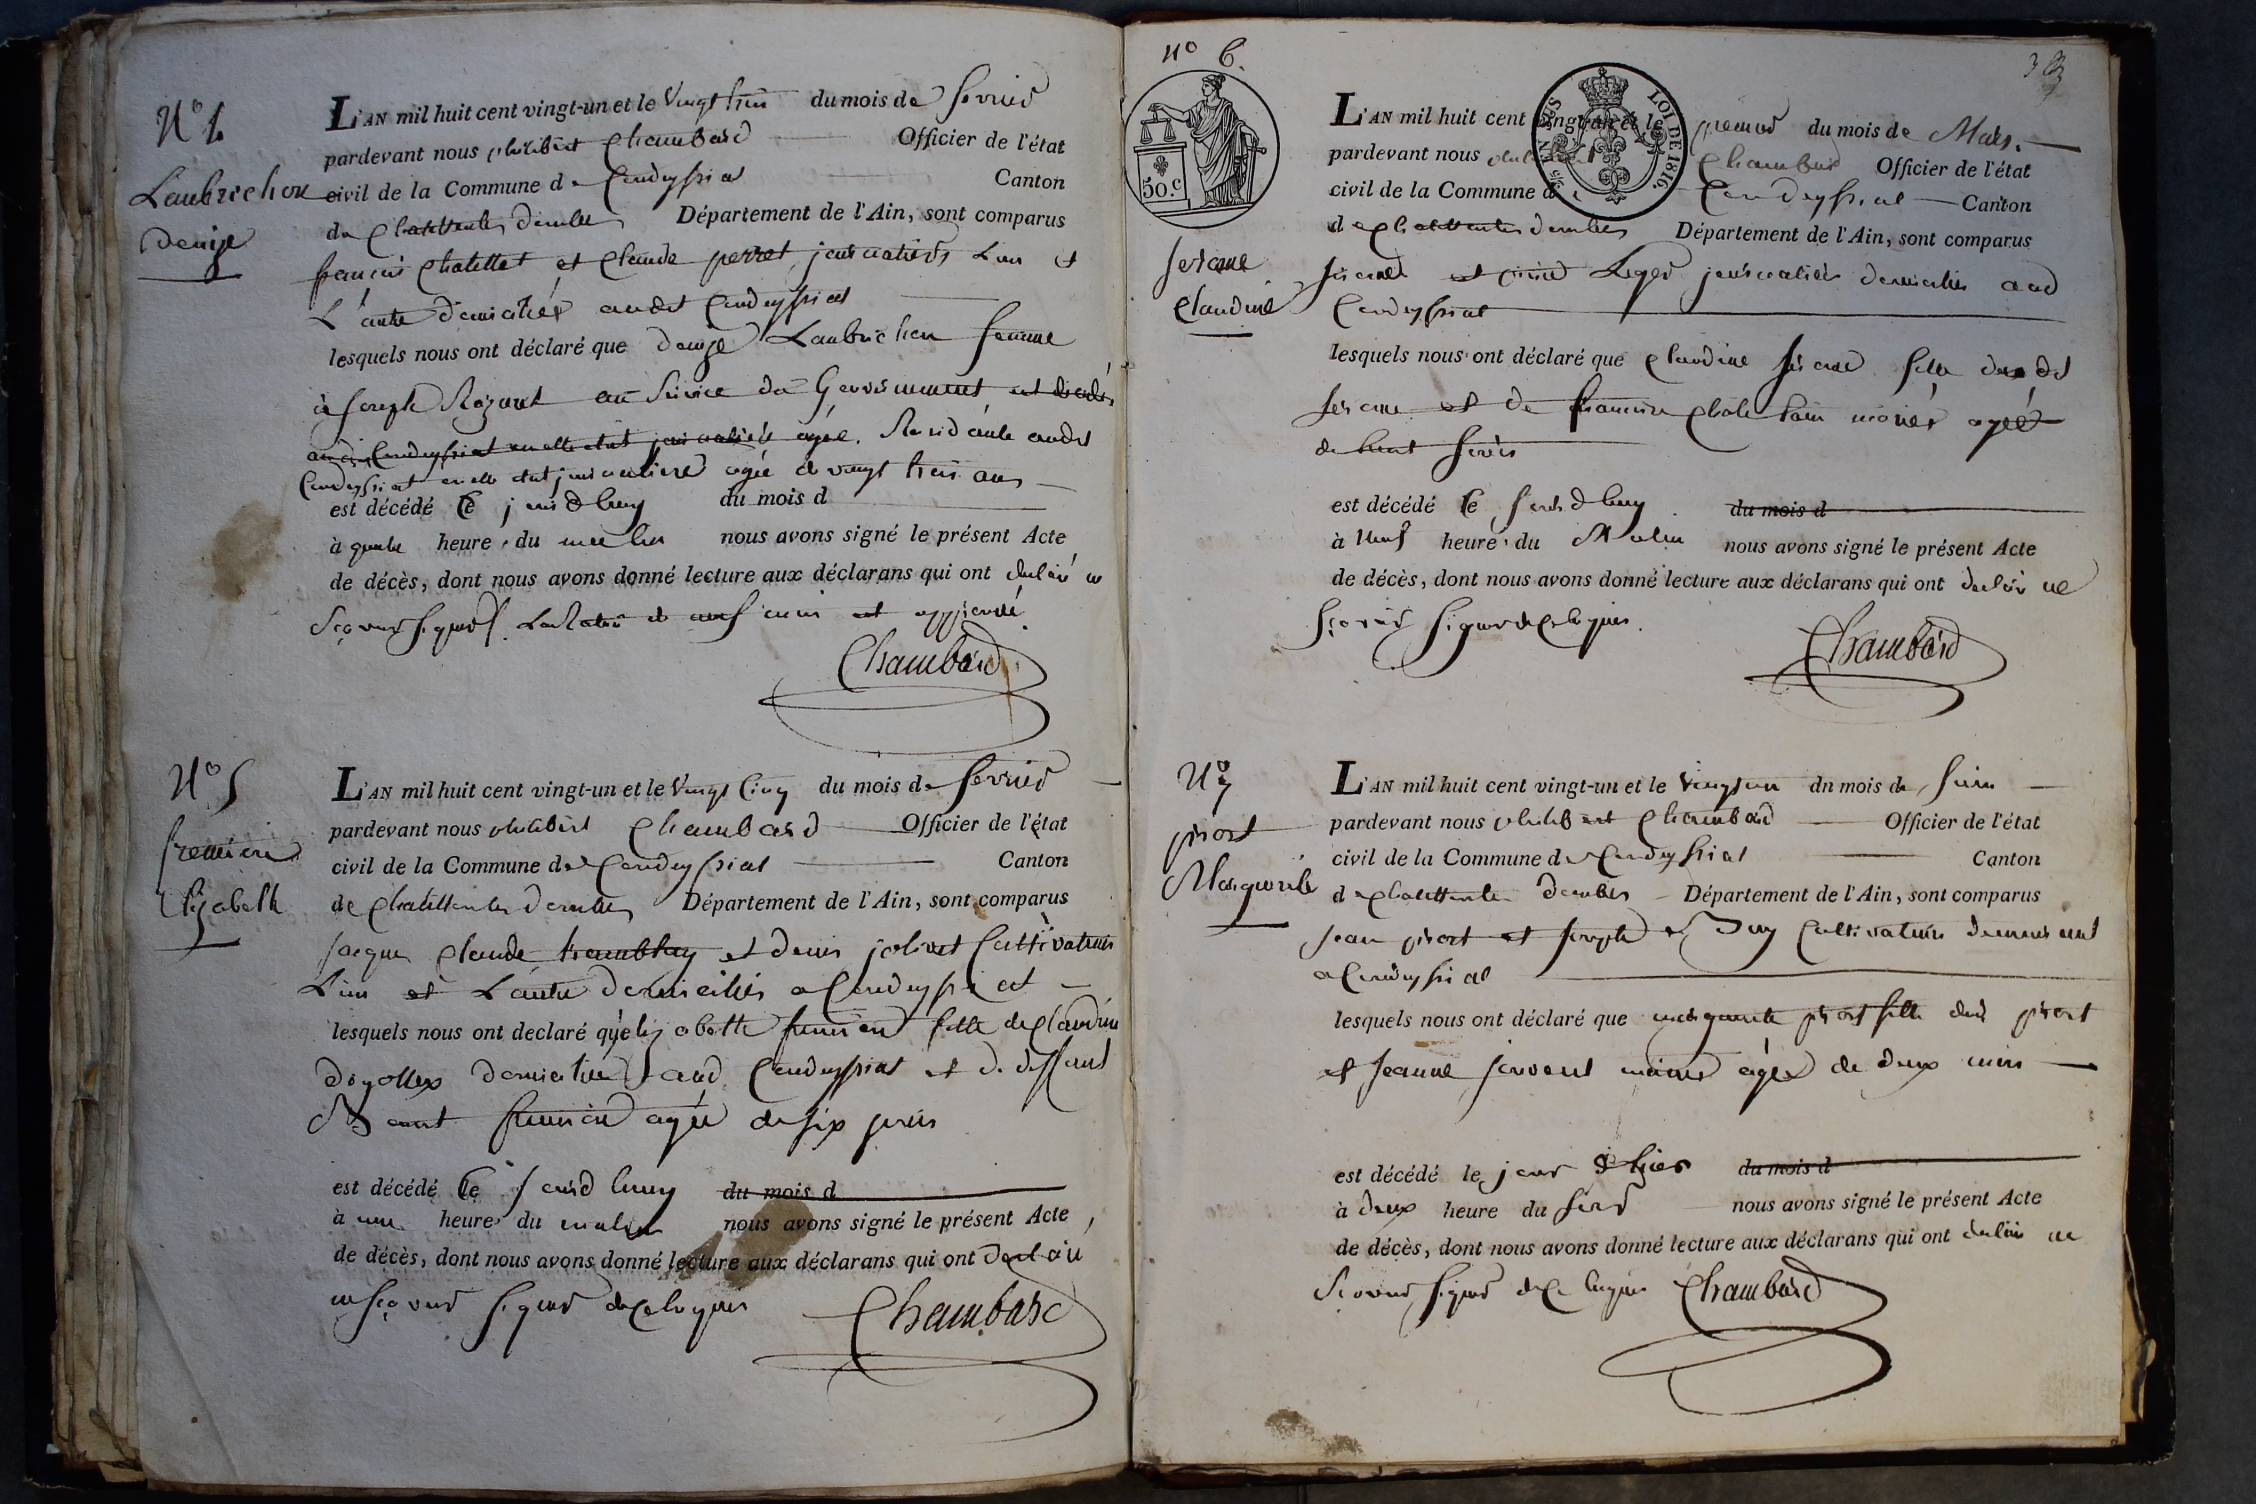 N° 4
Laubrechon
denize
L'AN mil huit cent vingt-un et le vingt trois du mois de fevrier
pardevant nous philibert Chambard Officier de l'état
civil de la Commune de Condeyssiat Canton
de Chatillon les dombes Département de l'Ain, sont comparus
françois Chatillet et Claude perret journaliers L'un et
L'autre domiciliés audit Condeyssiat
lesquels nous ont déclaré que denize Laubrechon femme
à joseph Rozant au Service du Gouvernement est décédé
audit Condeyssiat ou elle etait journaliere agée. Residante audit
Condeyssiat ou elle etait journaliere agée de vingt trois ans
est décédé Ce jourd'huy du mois d
à quatre heure du matin nous avons signé le présent Acte
de décès, dont nous avons donné lecture aux déclarans qui ont declaré ne
Sçavoir signer. La Rature et est approuvé
Chambard
N° 5
fremiere
Elizabeth
L'AN mil huit cent vingt-un et le vingt Cinq du mois de fevrier
pardevant nous philibert Chambard Officier de l'état
civil de la Commune de Condeyssiat Canton
de Chatillon les dombes Département de l'Ain, sont comparus
jacque Claude tremblay et denis jolivet Cultivateurs
L'un et L'autre domiciliés a Condeyssiat
lesquels nous ont declaré qu'elizabette fille de Claudine
domiciliée aud Condeyssiat et de deffunt
agée de six jours
est décédé Ce jourd'huy du mois d
à une heure du matin nous avons signé le présent Acte
de décès, dont nous avons donné lecture aux déclarans qui ont declaré
ne sçavoir signer de Ce requis Chambard
N° 6.
33
50.c
LOI DE 1816.
L'AN mil huit cent vingt-un et le premier du mois de Mars.
pardevant nous philibert Chambard Officier de l'état
civil de la Commune de Condeyssiat Canton
de Chatillon les dombes Département de l'Ain, sont comparus
Claudine
et Leger journaliers domiciliés aud
Condeyssiat
lesquels nous ont déclaré que Claudine fille dud
et de françoise mariés agée
de huit jours
est décédé Ce jourd'huy du mois d
à neuf heure du Matin nous avons signé le présent Acte
de décès, dont nous avons donné lecture aux déclarans qui ont declaré ne
sçavoir signer de Ce requis.
Chambard
N° 7
pivort
Marguerite
L'AN mil huit cent vingt-un et le vingt un du mois de juin
pardevant nous philibert Chambard Officier de l'état
civil de la Commune de Condeyssiat Canton
de Chatillon les dombes Département de l'Ain, sont comparus
jean pivort et joseph Cultivateurs demeurant
a Condeyssiat
lesquels nous ont déclaré que marguerite pivort fille dud pivort
et jeanne mariés agée de deux mois
est décédé le jour d'hier du mois d
à deux heure du soir nous avons signé le présent Acte
de décès, dont nous avons donné lecture aux déclarans qui ont declaré ne
Sçavoir signer de Ce requis Chambard